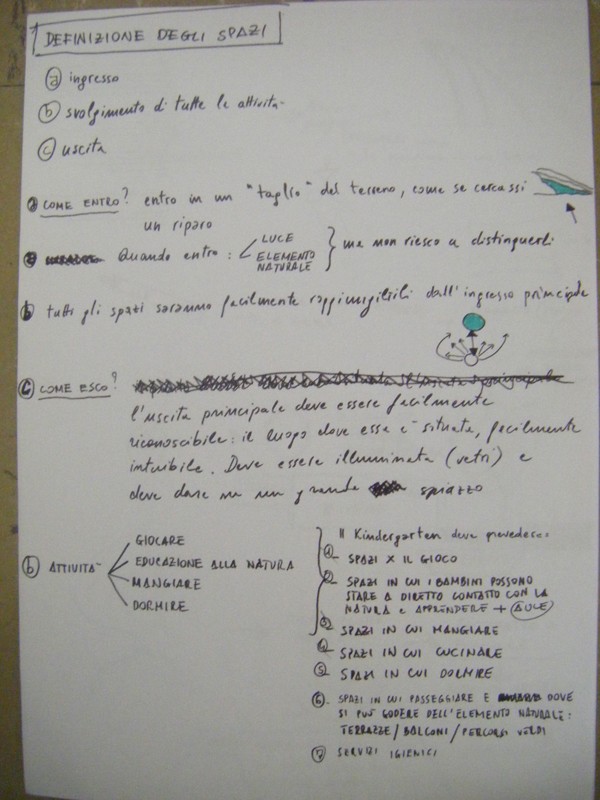 DEFINIZIONE DEGLI SPAZI
a ingresso
b svolgimento di tutte le attività
c uscita
a COME ENTRO? entro in un "taglio" del terreno, come se cercassi
un riparo
Quando entro: LUCE
ELEMENTO
NATURALE
ma non riesco a distinguerli
b tutti gli spazi saranno facilmente raggiungibili dall'ingresso principale
c COME ESCO?
l'uscita principale deve essere facilmente
riconoscibile: il luogo dove essa è situata, facilmente
intuibile. Deve essere illuminata (vetri) e
deve dare su un grande spiazzo
b ATTIVITÀ
GIOCARE
EDUCAZIONE ALLA NATURA
MANGIARE
DORMIRE
Il Kindergarten deve prevedere:
1 SPAZI X IL GIOCO
2 SPAZI IN CUI I BAMBINI POSSONO
STARE A DIRETTO CONTATTO CON LA
NATURA e APPRENDERE + AULE
3 SPAZI IN CUI MANGIARE
4 SPAZI IN CUI CUCINARE
5 SPAZI IN CUI DORMIRE
6. SPAZI IN CUI PASSEGGIARE E DOVE
SI PUÒ GODERE DELL'ELEMENTO NATURALE:
TERRAZZE/BALCONI/PERCORSI VERDI
7 SERVIZI IGIENICI